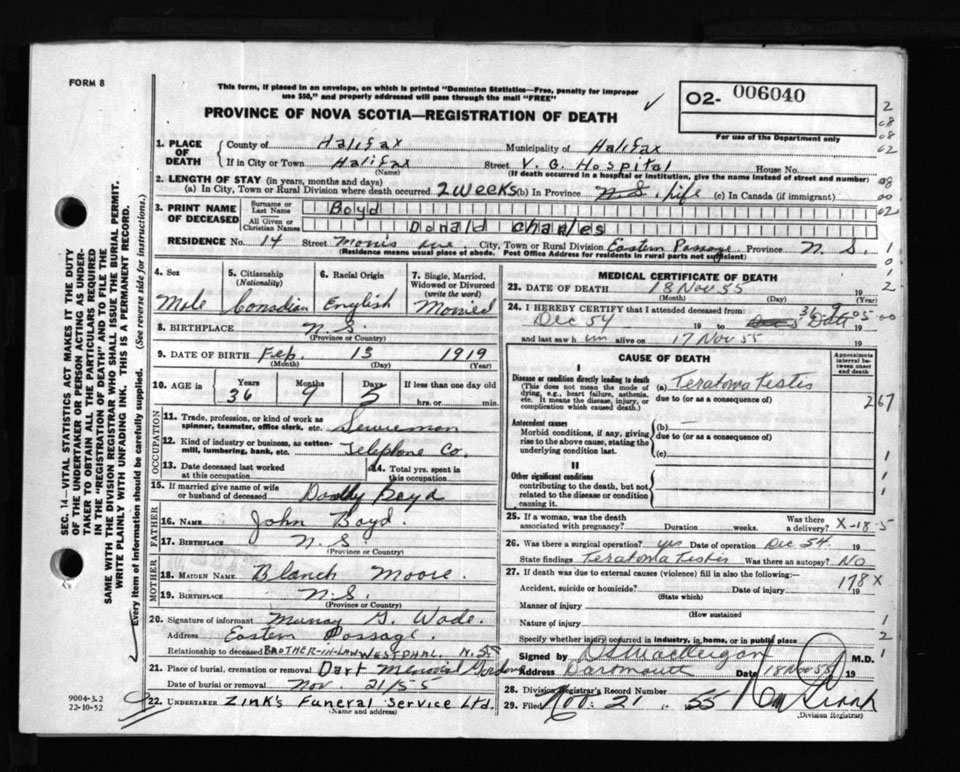 FORM 8
This form, if placed in an envelope, on which is printed "Dominion Statistics—Free, penalty for improper
use $50," and properly addressed will pass through the mail "FREE"
PROVINCE OF NOVA SCOTIA—REGISTRATION OF DEATH
02- 006040
For use of the Department only
1. PLACE OF DEATH
County of Halifax Municipality of Halifax
If in City or Town Halifax Street V. G. Hospital House No.
(If death occurred in a hospital or institution, give the name instead of street and number)
2. LENGTH OF STAY (in years, months and days)
(a) In City, Town or Rural Division where death occurred 2 weeks (b) In Province N.S. life (c) In Canada (if immigrant)
3. PRINT NAME OF DECEASED
Surname or Last Name Boyd
All Given or Christian Names Donald Charles
RESIDENCE No. 14 Street Morris ave. City, Town or Rural Division Eastern Passage. Province N. S.
(Residence means usual place of abode. Post Office Address for residents in rural parts not sufficient)
4. Sex Male
5. Citizenship (Nationality) Canadian
6. Racial Origin English
7. Single, Married, Widowed or Divorced (write the word) Married
8. BIRTHPLACE N.S.
(Province or Country)
9. DATE OF BIRTH Feb. 13 1919
(Month) (Day) (Year)
10. AGE in Years 36 Months 9 Days 5 If less than one day old
hrs. or min.
OCCUPATION
11. Trade, profession, or kind of work as
spinner, teamster, office clerk, etc. Serviceman
12. Kind of industry or business, as cotton-
mill, lumbering, bank, etc. Telephone Co.
13. Date deceased last worked
at this occupation
14. Total yrs. spent in
this occupation
15. If married give name of wife
or husband of deceased Boyd
FATHER
16. NAME John Boyd.
17. BIRTHPLACE N.S.
(Province or Country)
MOTHER
18. MAIDEN NAME Blanch Moore.
19. BIRTHPLACE N.S.
(Province or Country)
20. Signature of informant Murray G. Wade.
Address Eastern Passage.
Relationship to deceased BROTHER-IN-LAW WESTPHAL N.S.
21. Place of burial, cremation or removal Dart Memorial Gardens
Date of burial or removal Nov. 21/55
22. UNDERTAKER Zink's Funeral Service Ltd.
(Name and address)
MEDICAL CERTIFICATE OF DEATH
23. DATE OF DEATH 18 Nov 55 19
(Month) (Day) (Year)
24. I HEREBY CERTIFY that I attended deceased from:
Dec 54 19 to Date 19
and last saw h im alive on 17 Nov 55 19
CAUSE OF DEATH
Approximate
interval be-
tween onset
and death
I
Disease or condition directly leading to death
(This does not mean the mode of
dying, e.g., heart failure, asthenia,
etc. It means the disease, injury, or
complication which caused death.)
(a) Teratoma testis
due to (or as a consequence of)
Antecedent causes
Morbid conditions, if any, giving
rise to the above cause, stating the
underlying condition last.
(b)
due to (or as a consequence of)
(c)
II
Other significant conditions
contributing to the death, but not
related to the disease or condition
causing it.
25. If a woman, was the death
associated with pregnancy? Duration weeks. Was there
a delivery? X-18-5
26. Was there a surgical operation? yes Date of operation Dec 54. 19
State findings Teratoma Testis Was there an autopsy? No
27. If death was due to external causes (violence) fill in also the following:—
Accident, suicide or homicide? Date of injury 19
178 X
(State which)
Manner of injury
(How sustained
Nature of injury
Specify whether injury occurred in industry, in home, or in public place
Signed by M.D.
Address Dartmouth Date 18 Nov 55 19
28. Division Registrar's Record Number
29. Filed Nov. 21 55
(Division Registrar)
267
9004-3-2
22-10-52
SEC. 14—VITAL STATISTICS ACT MAKES IT THE DUTY
OF THE UNDERTAKER OR PERSON ACTING AS UNDER-
TAKER TO OBTAIN ALL THE PARTICULARS REQUIRED
IN THE "REGISTRATION OF DEATH" AND TO FILE THE
SAME WITH THE DIVISION REGISTRAR WHO SHALL ISSUE THE BURIAL PERMIT.
WRITE PLAINLY WITH UNFADING INK. THIS IS A PERMANENT RECORD.
Every item of information should be carefully supplied. (See reverse side for instructions.)